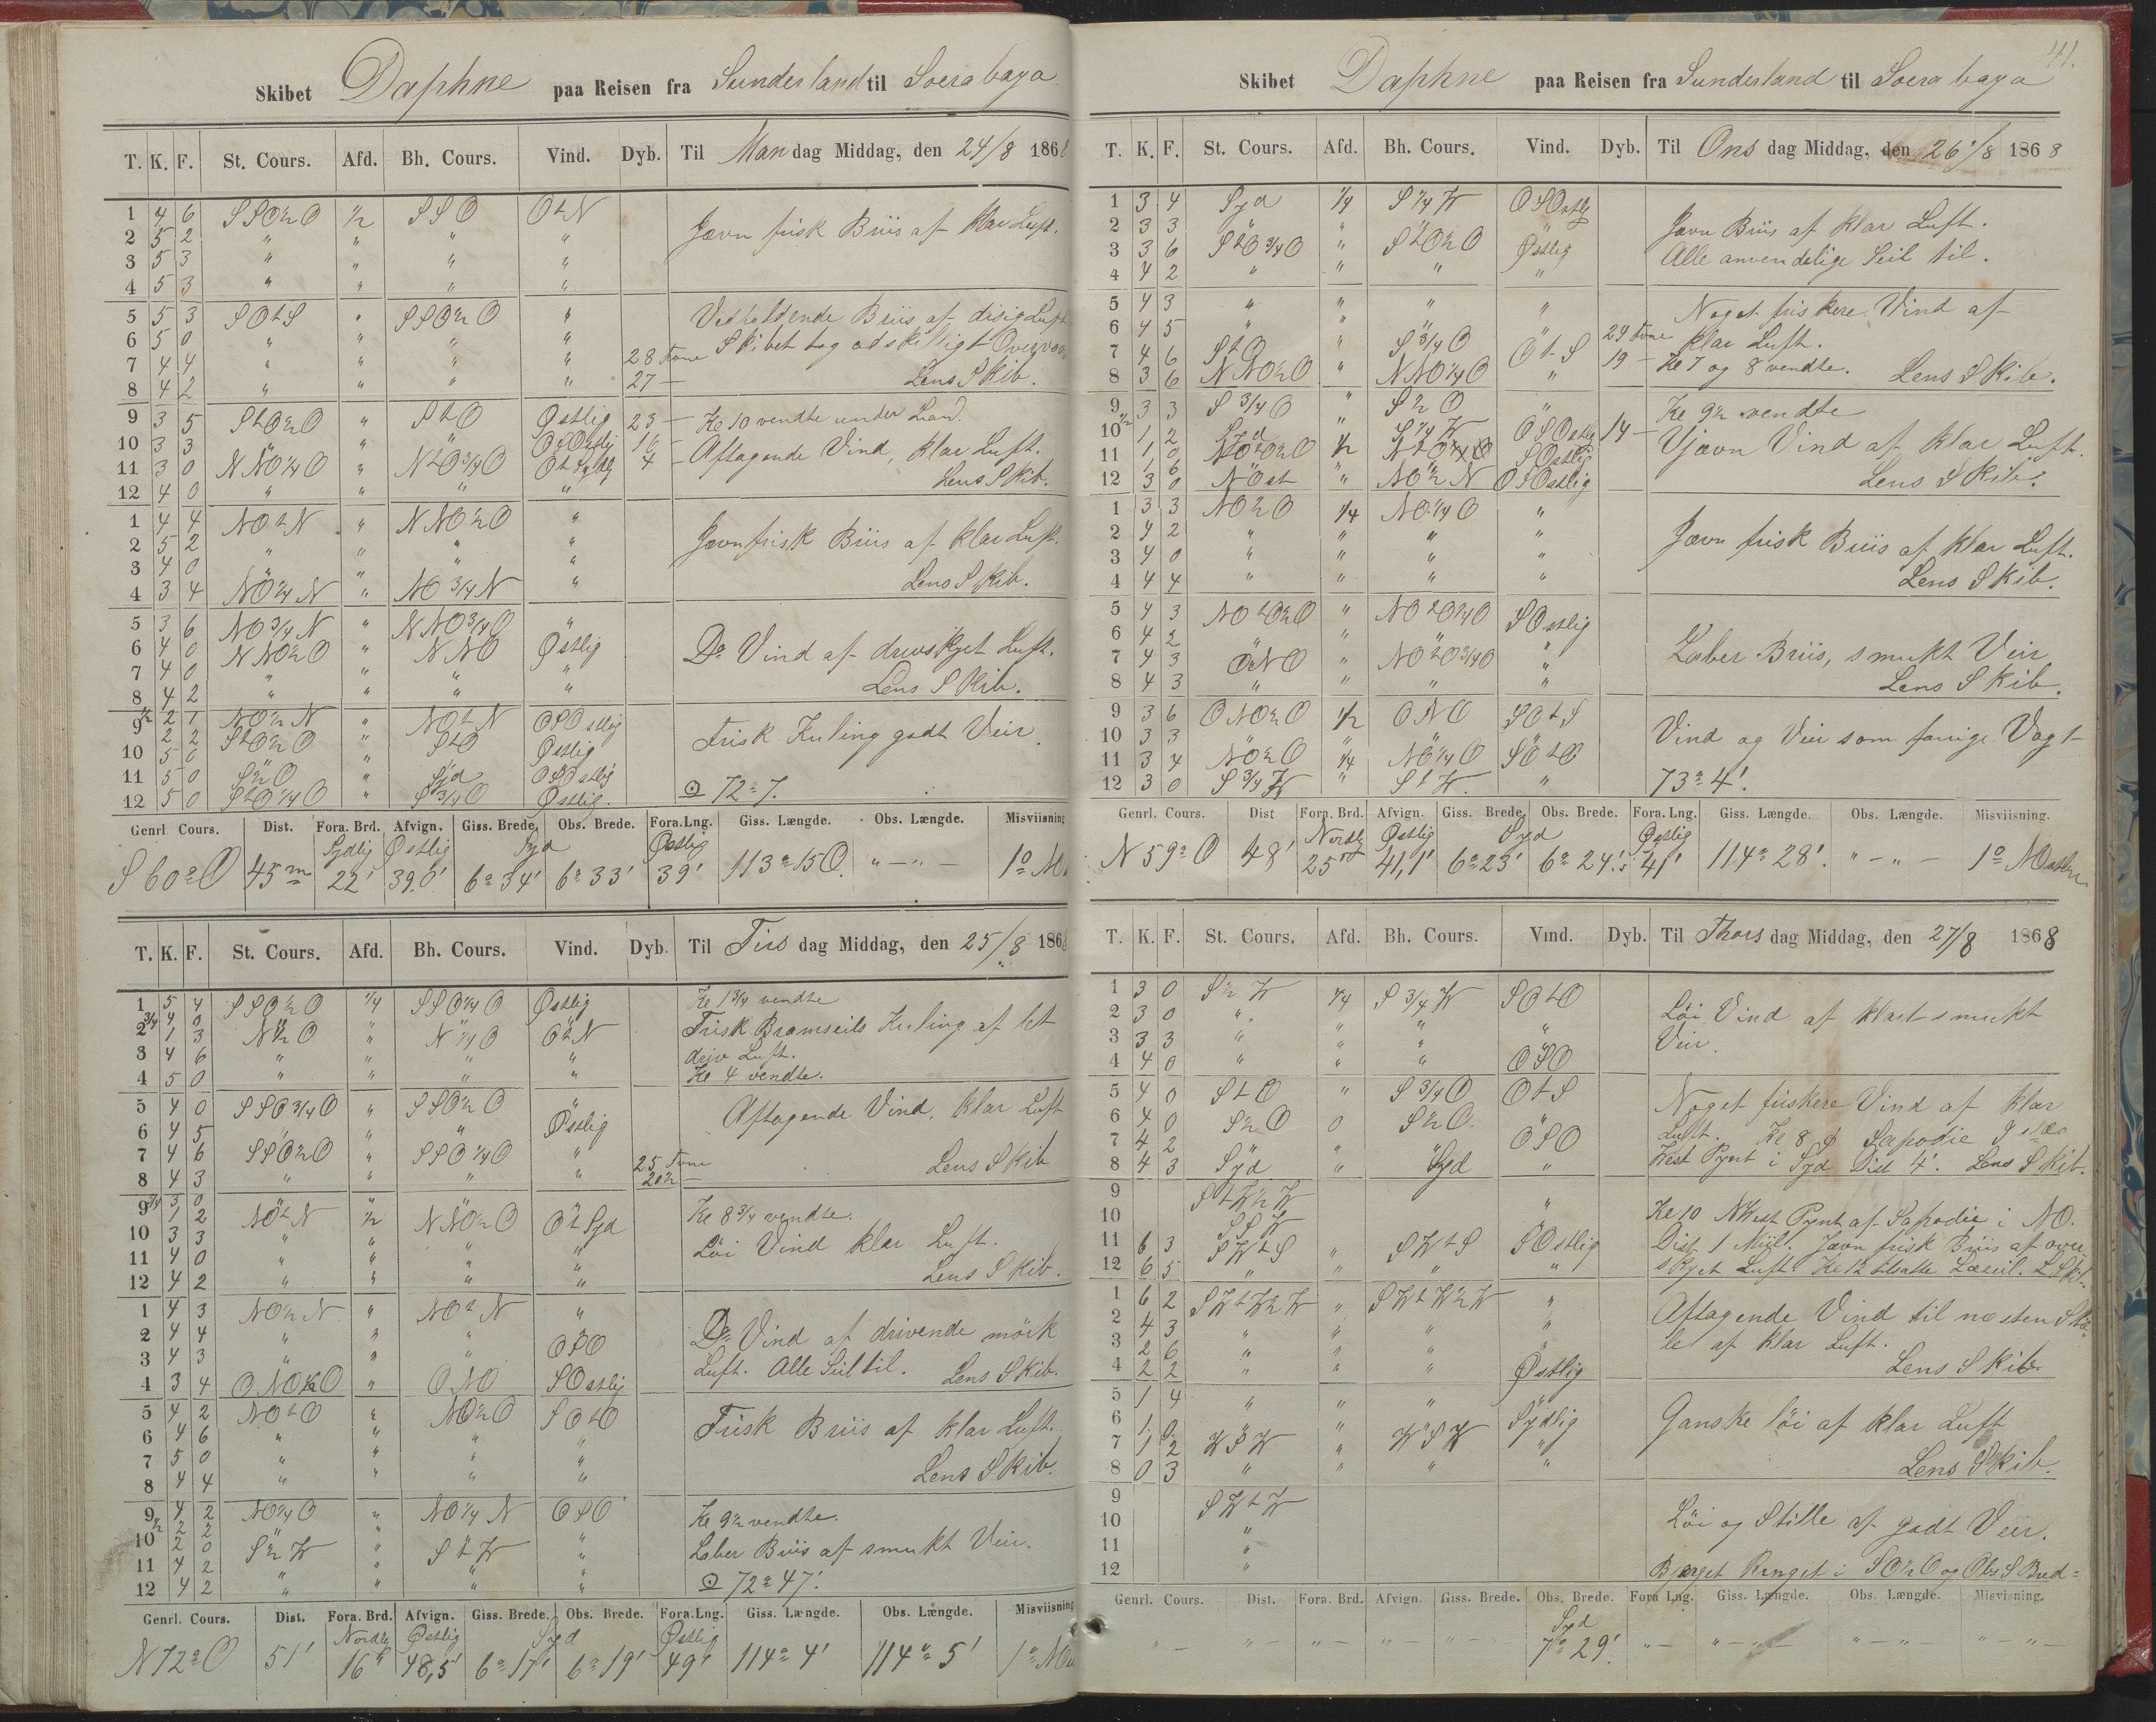 Skibet Daphne paa Reisen fra Sunderland til Soerabaya
T. K. F. St. Cours. Afd. Bh. Cours. Vind. Dyb. Til Man dag Middag, den 24/8 186
1 4 6 SSO½O ½ SSO OtN
2 5 2 " " " "
3 5 3 " " " "
4 5 3 " " " "
Jævn frisk Briis af klar Luft.
5 5 3 SOtS " SSO½O "
6 5 0 " " " "
7 4 4 " " " " 28 Fvne
8 4 2 " " " " 27 —
Vedholdende Briis af disig Luft
Skibet tog adskilligt
Lens Skib.
9 3 5 StO½O " StO Østlig 23 —
10 3 3 " " " OSOstlig 16
11 3 0 NNO¼O " NtO¾O 4
12 4 0 " " " "
Kl 10 vendte under Land.
Aftagende Vind, klar Luft.
Lens Skib.
1 4 4 NOtN " NNO½O "
2 5 2 " " " "
3 4 0 " " " "
4 3 4 NO¼N " NO¾N "
Jævn frisk Briis af klar Luft.
Lens Skib.
5 3 6 NO¾N " NNO¾O "
6 4 0 NNO½O " NNO Østlig
7 4 0 " " " "
8 4 2 " " " "
Do Vind af Luft.
Lens Skib.
9 ½ 2 1 NO½N " NOtN OSOstlig
2 2 StO½O " StO Østlig
10 5 0 "
11 5 0 S½O " Syd OSOstlig
12 5 0 StO¼O " S¾O Østlig.
Frisk Kuling godt Veir.
72° 7.
Genrl. Cours. Dist. Fora. Brd. Afvign. Giss. Brede. Obs. Brede. Fora.Lng. Giss. Længde. Obs. Længde. Misviisning
Sydlig Østlig Syd Østlig
S 60° O 45 m 22' 39,0' 6° 34' 6° 33' 39' 113° 15 O. " — " — 1°
T. K. F. St. Cours. Afd. Bh. Cours. Vind. Dyb. Til Tirs dag Middag, den 25/8 186
1 5 4 SSO½O ¼ SSO¼O Østlig
¾ 4 0
2 1 3 N½O " N¼O OtN
3 4 6 " " " "
4 5 0 " " " "
Kl 1¾ vendte
Frisk Bramseils Kuling af let
Luft.
Kl 4 vendte.
5 4 0 SSO¾O " SSO½O "
6 4 5 " " " Østlig
7 4 6 SSO½O " SSO¼O " 25 Fvne
8 4 3 " " " " 20½ —
Aftagende Vind, klar Luft
Lens Skib
9 ¾ 3 0 " "
1 2 NOtN ½ NNO½O OtSyd
10 3 3 " " " "
11 4 0 " " " "
12 4 2 " " " "
Kl 8¾ vendte.
Löi Vind klar Luft.
Lens Skib.
1 4 3 NO½N " NOtN "
2 4 4 " " " "
3 4 3 " " " OSO
4 3 4 ONO½O " ONO SOstlig
Do Vind af drivende mörk
Luft. Alle Seil til. Lens Skib.
5 4 2 NOtO " NO½O SOtO
6 4 6 " " " "
7 5 0 " " " "
8 4 4 " " " "
Frisk Briis af klar Luft.
Lens Skib.
9 4 2 NO¼O " NO¼N OSO
½ 2 2
10 2 0 S½W " StW "
11 4 2 " " " "
12 4 2 " " " "
Kl 9½ vendte.
Laber Briis af smukt Veir.
72° 47'.
Genrl. Cours. Dist. Fora. Brd. Afvign. Giss. Brede. Obs. Brede. Fora.Lng. Giss. Længde. Obs. Længde. Misviisning
Nordlig Østlig Syd Østlig
N 72° O 51' 16' 48,5' 6° 17' 6° 19' 49' 114° 4' 114° 5' 1°
41.
Skibet Daphne paa Reisen fra Sunderland til Soerabaya
T. K. F. St. Cours. Afd. Bh. Cours. Vind. Dyb. Til Ons dag Middag, den 26/8 1868
1 3 4 Syd ¼ S¼W OSOstlig
2 3 3 " " " "
3 3 6 StO¾O " StO½O Østlig
4 4 2 " " " "
Jævn Briis af klar Luft.
Alle anvendelige Seil til.
5 4 3 " " " "
6 4 5 " " " " 29 Fvne
7 4 6 StO " S¾O OtS 19 —
8 3 6 NNO½O " NNO¼O "
Noget friskere Vind af
klar Luft.
Kl 7 og 8 vendte. Lens Skib.
9 ½ 3 3 S¾O " S½O "
10 1 2 Syd " S¼W OSOstlig 14 —
11 1 0 ½ SOstlig
1 6
12 3 0 NOst " NO½N OSOstlig
Kl 9½ vendte
Ujævn Vind af klar Luft.
Lens Skib.
1 3 3 NO½O ¼ NO¼O "
2 4 2 " " " "
3 4 0 " " " "
4 4 4 " " " "
Jævn frisk Briis af klar Luft.
Lens Skib.
5 4 3 NOtO½O " NOtO¼O SOstlig
6 4 2 " " "
7 4 3 ONO " NOtO¾O "
8 4 3 " " " "
Laber Briis, smukt Veir
Lens Skib.
9 3 6 ONO½O ½ ONO SOtS
10 3 3 " " " "
11 3 4 NO½O ¼ NO¼O SOtO
12 3 0 S¾W " StW "
Vind og Veir som forrige Vagt
73° 4'.
Genrl. Cours. Dist Fora. Brd. Afvign. Giss. Brede. Obs. Brede. Fora. Lng. Giss. Længde. Obs. Længde. Misviisning.
Nordlig Østlig Syd Østlig
N 59° O 48' 25' 41,1' 6° 23' 6° 24'.5 41' 114° 28'. " — " — 1° NOostlig
T. K. F. St. Cours. Afd. Bh. Cours. Vind. Dyb. Til Thors dag Middag, den 27/8 1868
1 3 0 S½W ¼ S¾W SOtO
2 3 0 " " " "
3 3 3 " " " "
4 4 0 " " " OSO
Löi Vind af klart smukt
Veir.
5 4 0 StO " S¾O OtS
6 4 0 S½O 0 S½O "
7 4 2 OSO
8 4 3 Syd " Syd "
Noget friskere Vind af klar
Luft. Kl 8 Sapodie
West Pynt i Syd Dist 4'. Lens Skib.
9 StW½W "
10 SSW "
11 6 3 SWtS " SWtS SOstlig
12 6 5 " " " "
Kl 10 NWest Pynt af Sapodie i NO.
Dist 1 Miil. Jævn frisk Briis af over
skyet Luft. Kl 12 Læseil. L Skib.
1 6 2 SWtW½W " SWtW½W "
2 4 3 " " " "
3 2 6 " " " "
4 2 2 " " " Østlig
Aftagende Vind til næsten Stil-
le af klar Luft.
Lens Skib.
5 1 4 " " "
6 1 0 " Sydlig
7 1 2 WSW " WSW "
8 0 3 " " " "
Ganske löi af klar Luft
Lens Skib.
9 SWtW
10 "
11 "
12 "
Löi og Stille af godt Veir.
Bjerget Ringet i SO½O og Obs S Bred-
Genrl. Cours. Dist. Fora. Brd. Afvign. Giss. Brede. Obs. Brede. Fora Lng. Giss. Længde. Obs. Længde. Misvisning.
Syd
" — " — " — " — " — 7° 29'. " — " — " — " — " —